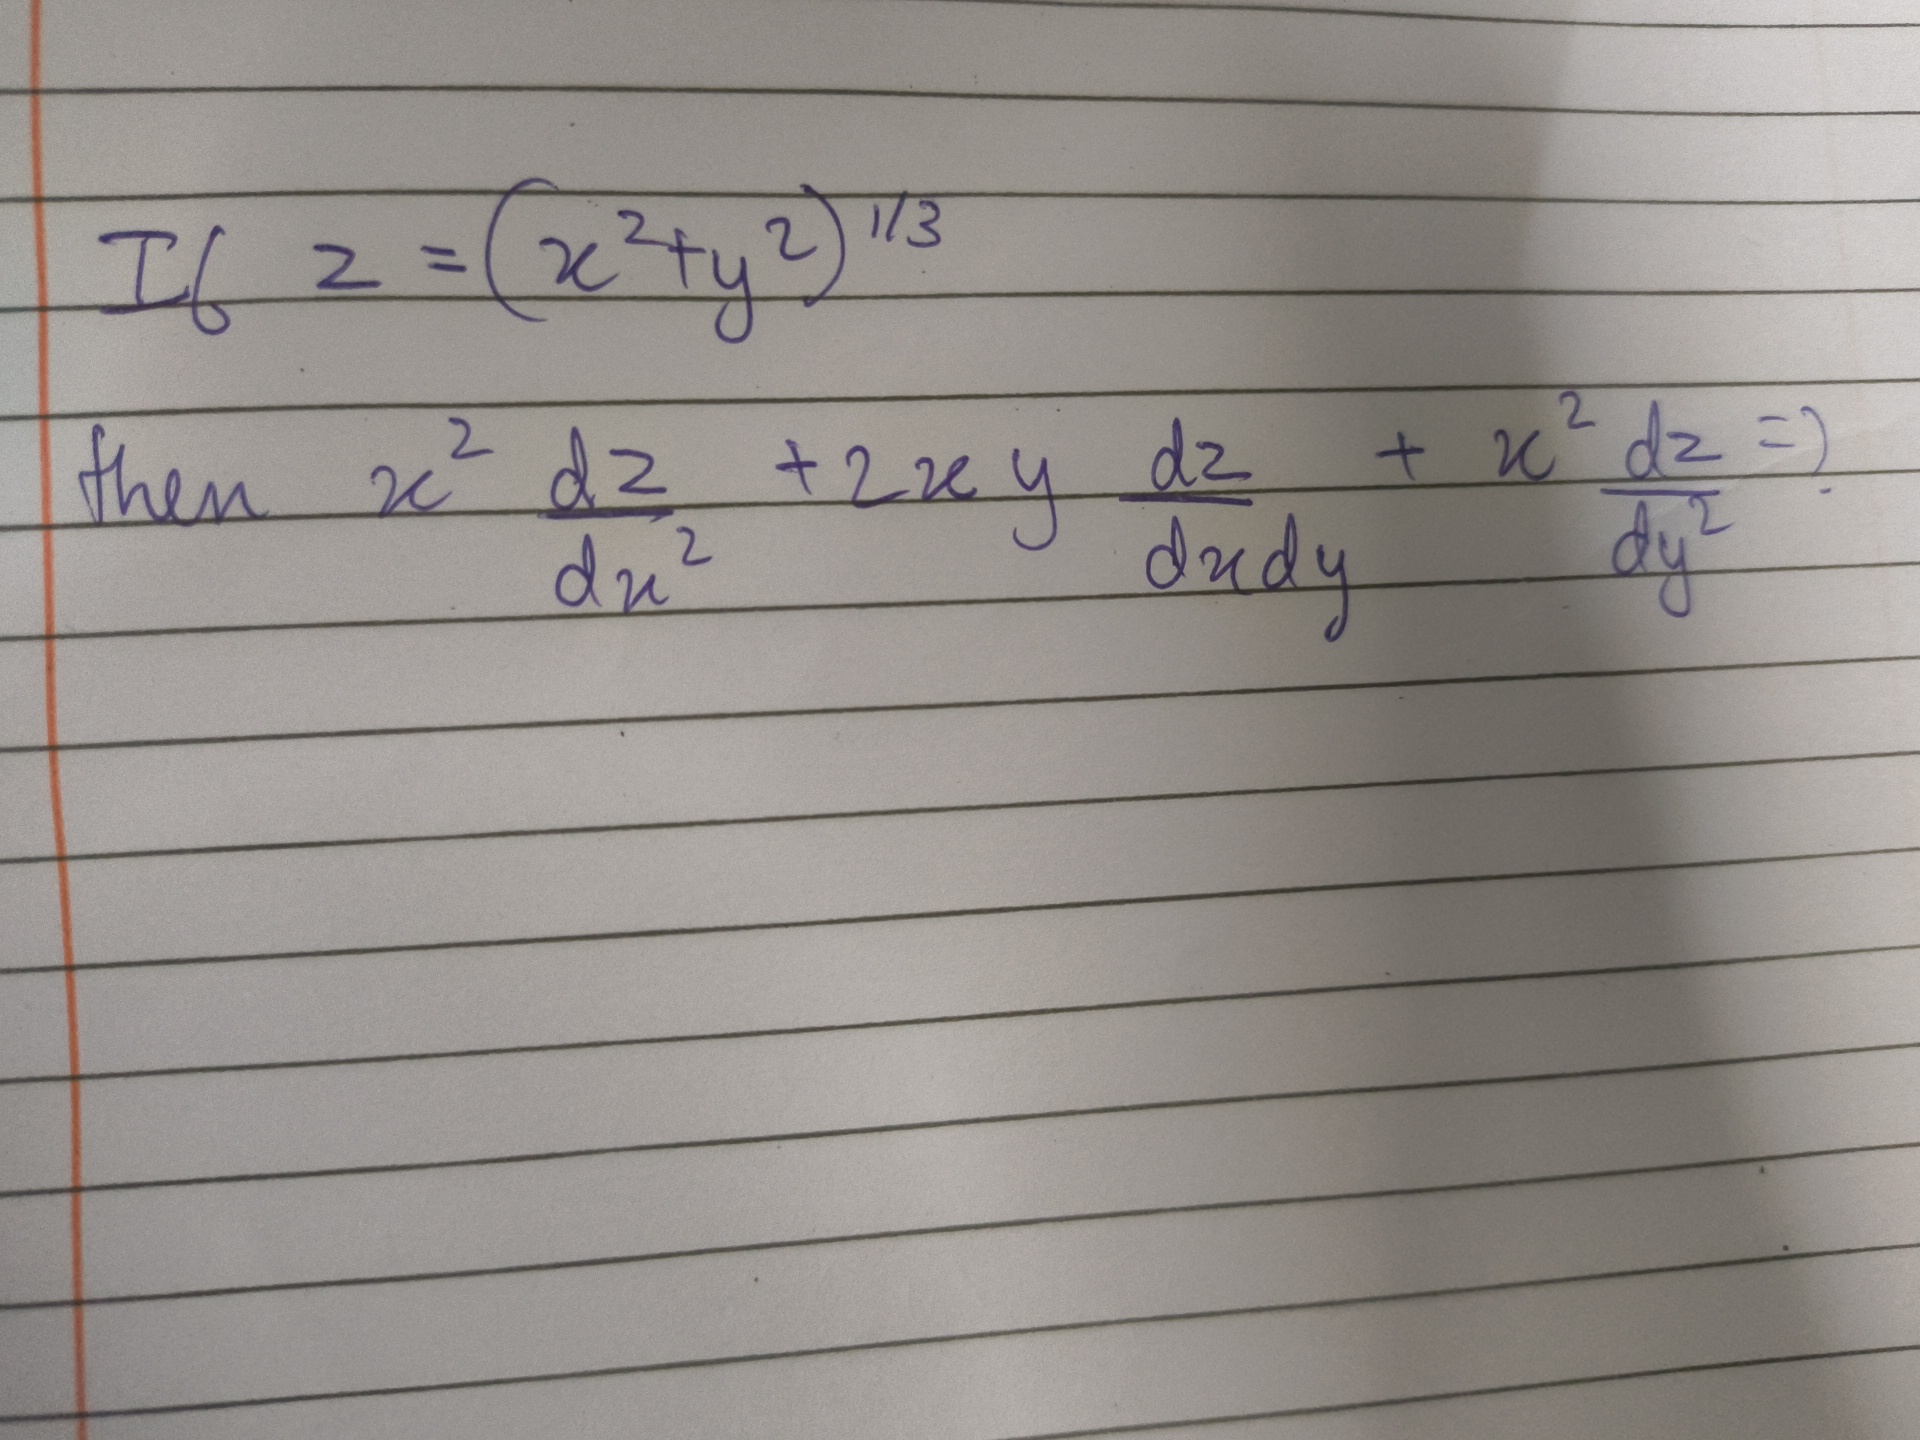 If z = (x²+y²)^1/3
then x² dz/dx² + 2xy dz/dxdy + x² dz/dy² = ?